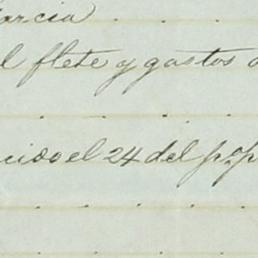 arcia
l flete y gastos
cido el 24 del p.º p